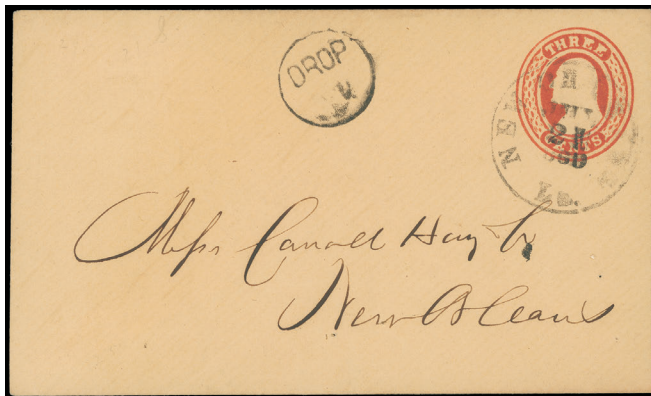 DROP
THREE
CENTS
NEW
21
La.
Mess Carroll Hoy & Co
New Orleans